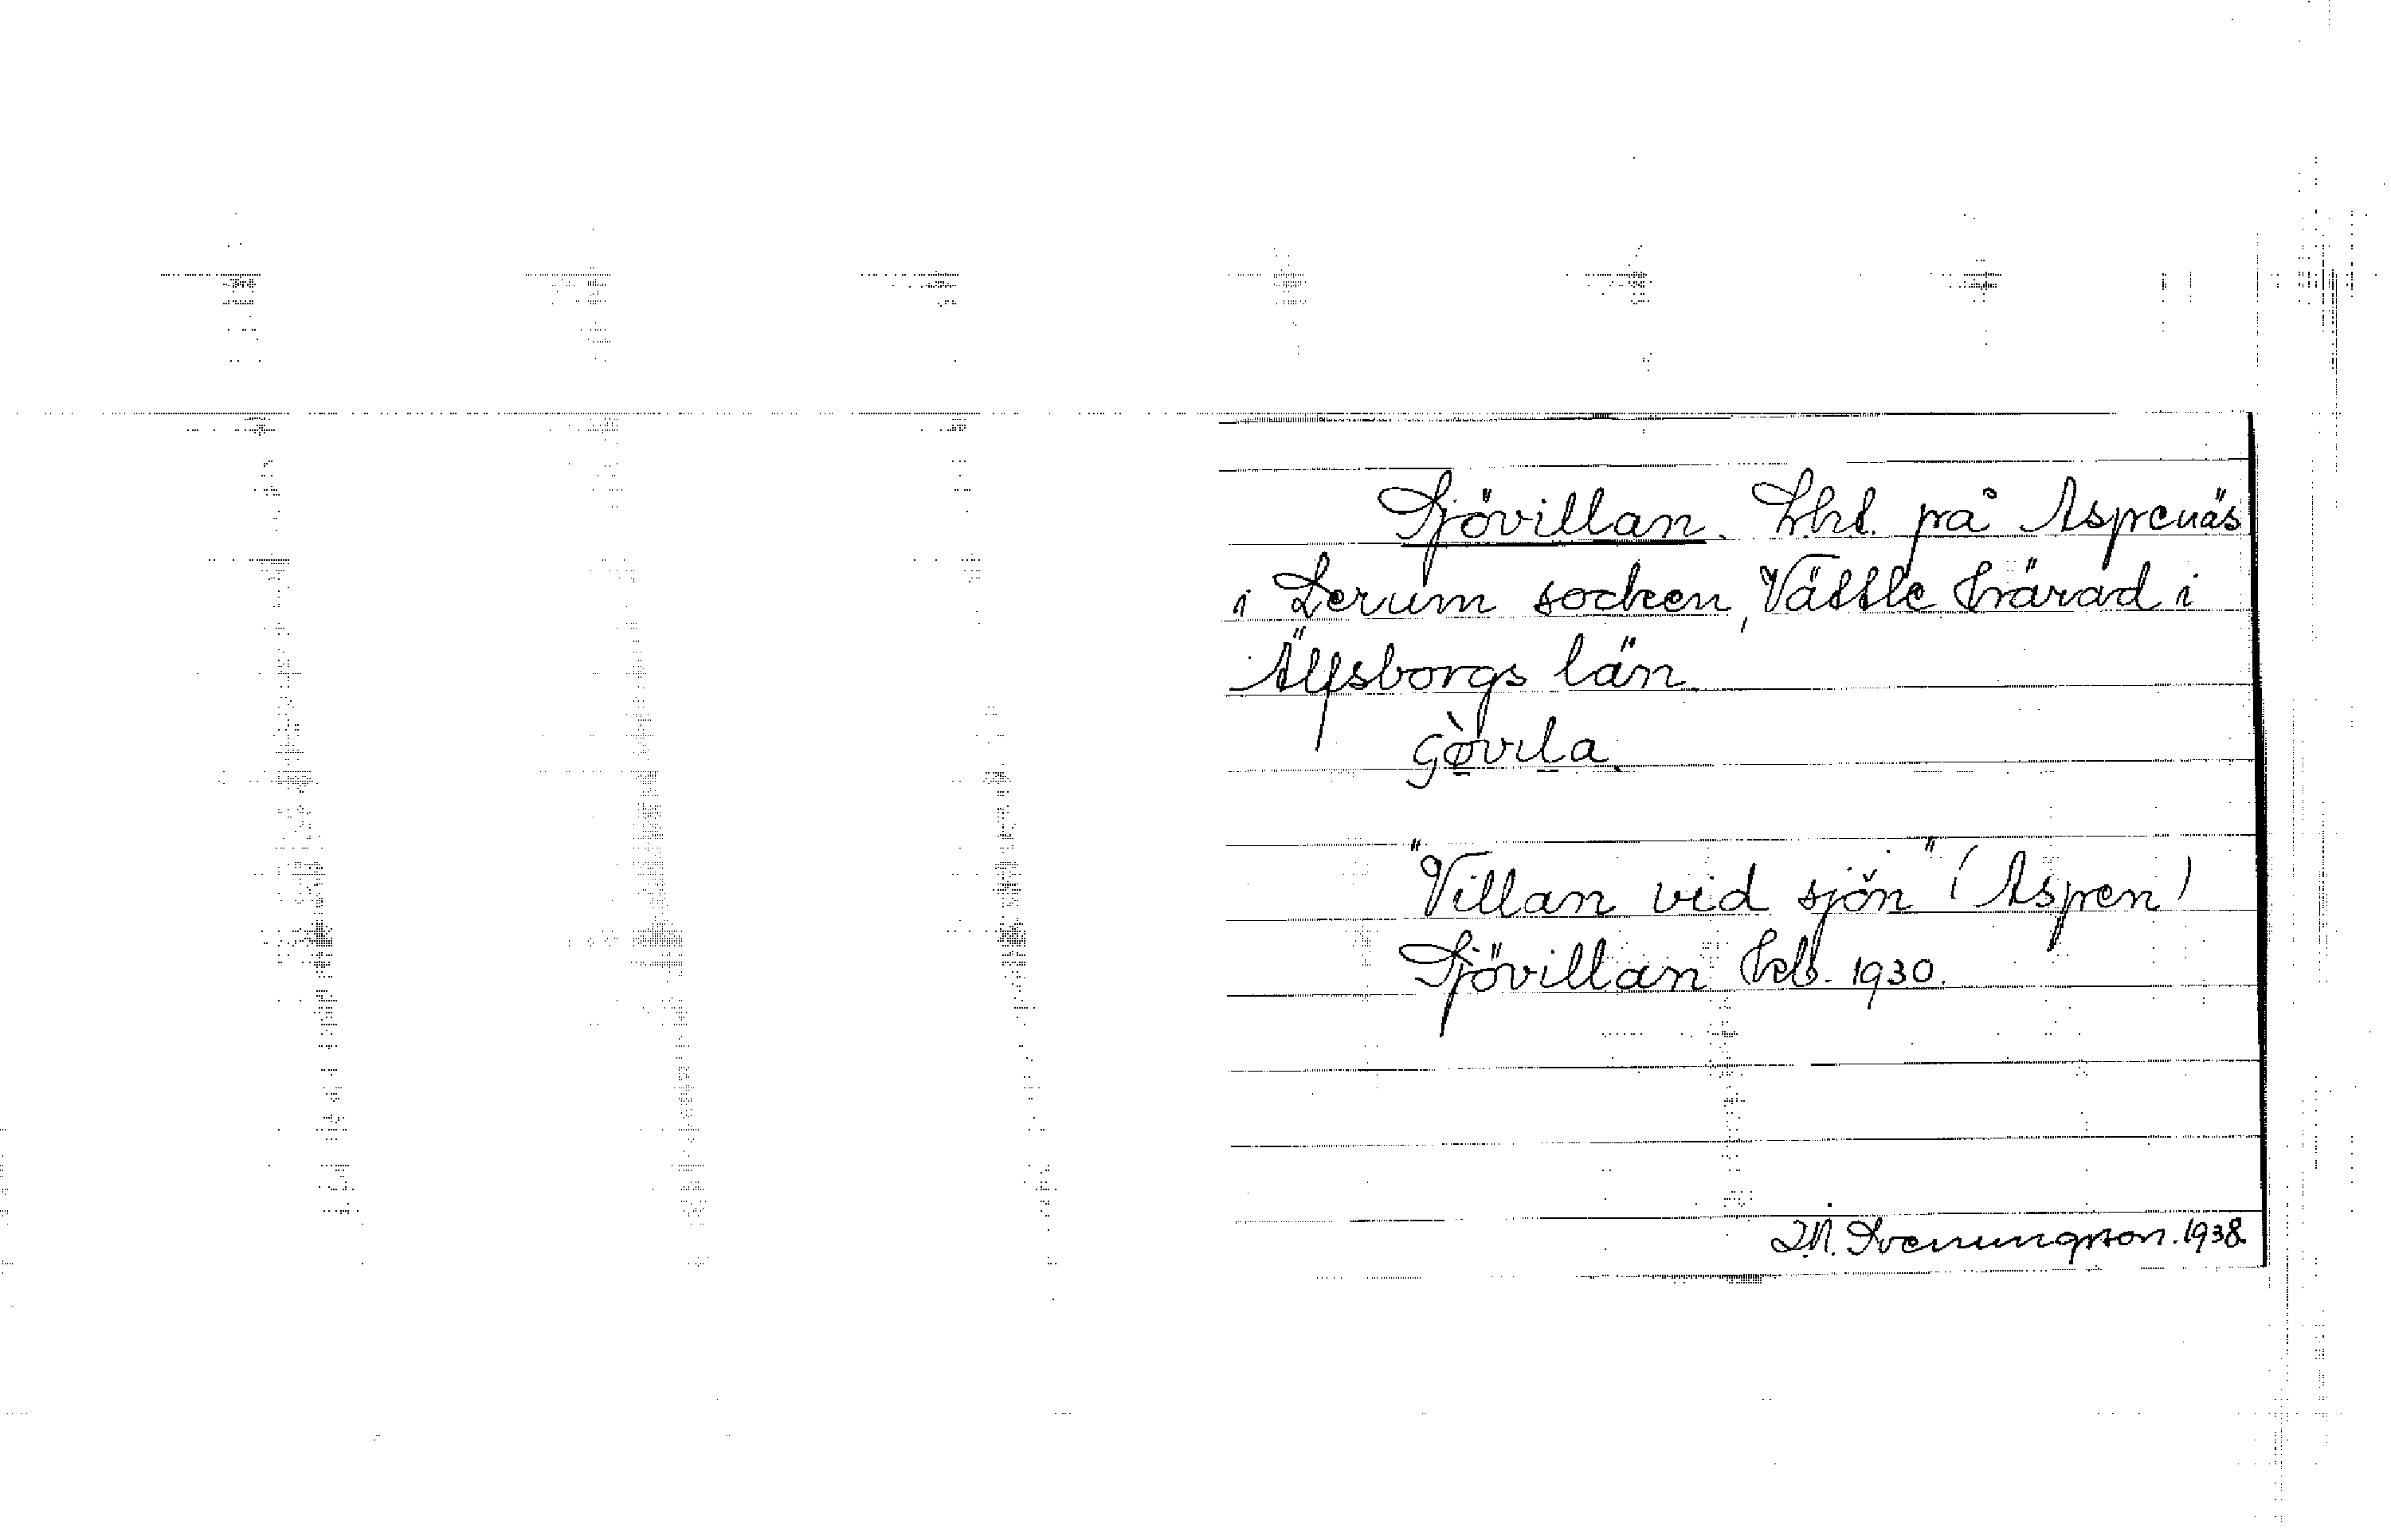 Sjövillan. Lht. på Aspenäs
i Lerum socken, Vättle härad i
Älfsborgs län.
"Villan vid sjön" (Aspen)
Sjövillan Hcb. 1930.
Svenungsson. 1938